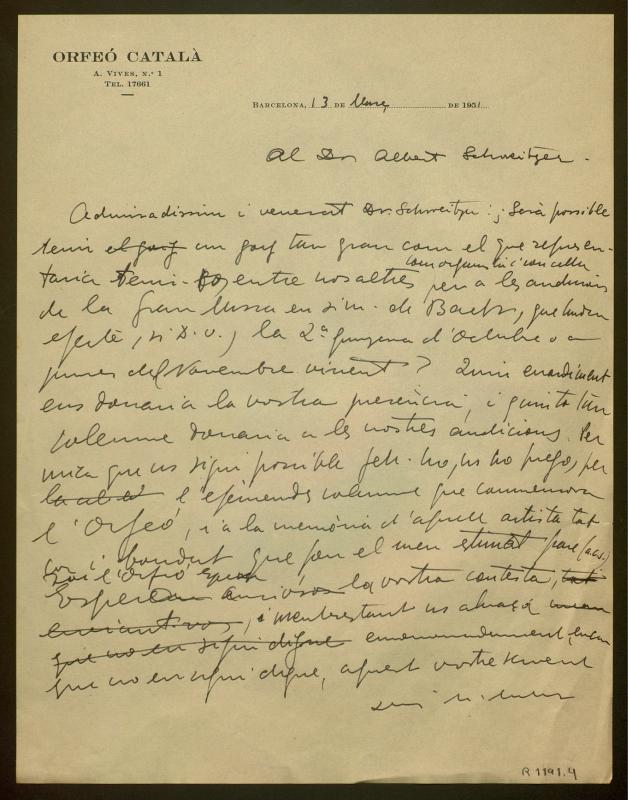 ORFEÓ CATALÀ
A. VIVES, N.º 1
TEL. 17661
BARCELONA, 13 DE Març DE 1951
Al Dr. Albert Schweitzer.
Admiradissim i venerat Dr. Schweitzer: ¿Serà possible
tenir el goig un goig tan gran com el que represen-
taria tenir-vos entre nosaltres per a les audicions
com organista i conseller
de la Gran Missa en si m. de Bach, que tindran
efecte, si D. v., la 2ª quinzena d'Octubre o a
primers del Novembre vinent? Quin enardiment
ens donaria la vostra presència, i quin to tan
solemne donaria a les nostres audicions. Per
mica que us sigui possible feu-ho, us ho prego, per
l'efemèride solemne que commemora
l'Orfeó, i a la memòria d'aquell artista tot
cor i bondat que fou el meu estimat pare (a.c.s.)
Jo i l'Orfeó
Esperem la vostra contesta, tot
enviant-vos, i mentrestant us abraça
que no en sigui digne emocionadament, encara
que no en sigui digne, aquest vostre servent